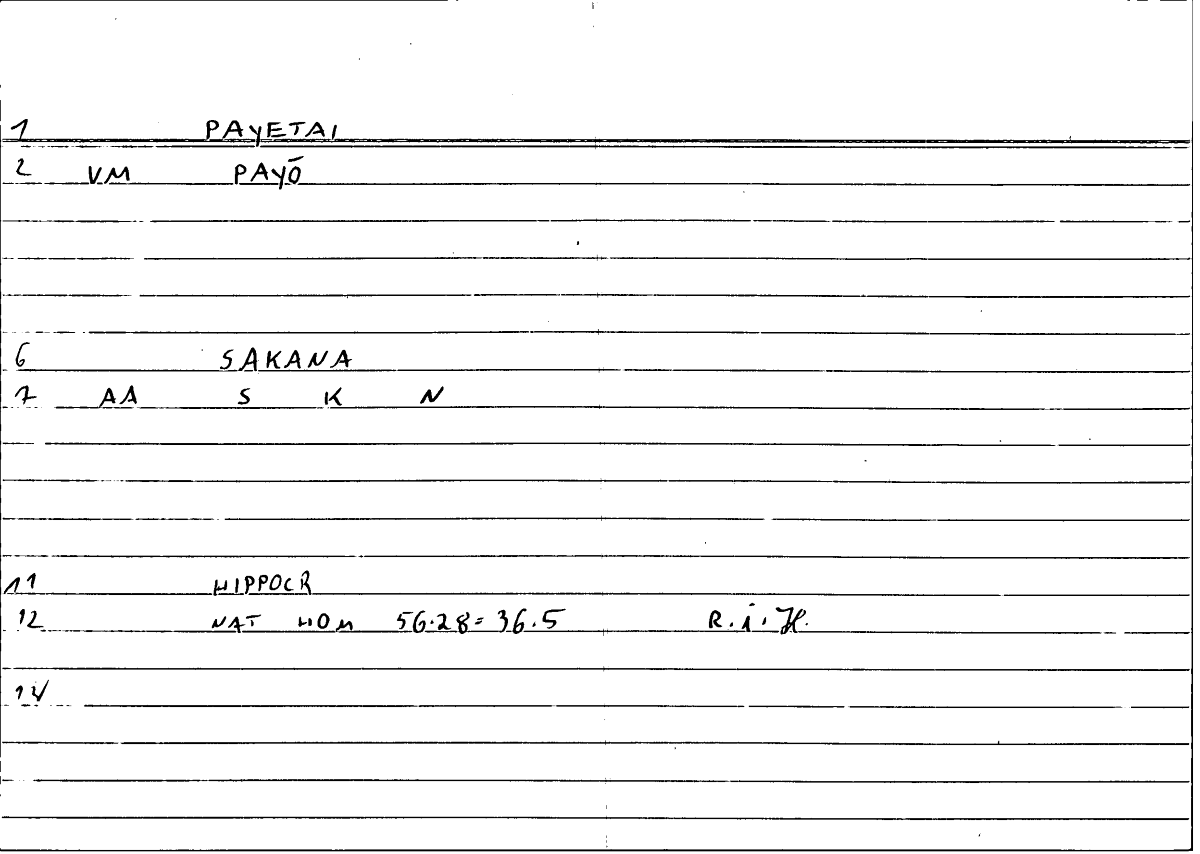 1 PAYETAI
2 VM PAYŌ
6 SAKANA
7 AA S K N
11 HIPPOCR
12 NAT HOM 56.28=36.5 R.i.H.